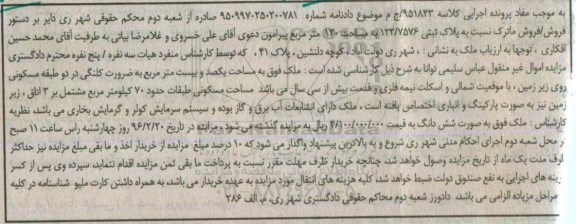 به موجب مفاد پرونده اجرایی کلاسه ۹۵۱۸۳۳/ج م موضوع دادنامه شماره ۹۵۰۹۹۷۰۲۵۰۲۰۰۷۸۱ صادره از شعبه دوم محکم حقوقی شهر ری دایر بر دستور
فروش/فروش ماترک نسبت به پلاک ثبتی ۱۲۳/۷۵۷۶ به مساحت ۱۲۰ متر مربع پیرامون دعوی آقای علی خسروی و غلامرضا بیانی به طرفیت آقای محمد حسین
افکاری، توجها به ارزیاب ملک به نشانی: شهر ری دولت آباد، کوچه دلنشین، پلاک ۴۱، که توسط کارشناس منفرد هیات سه نفره / پنج نفره محترم دادگستری
مزایده اموال غیر منقول عباس سلیمی توانا به شرح ذیل کارشناسی شده است: ملک فوق به مساحت یکصد و بیست متر مربع به ضرورت کلنگی در دو طبقه مسکونی
روی زیر زمین، با موقعیت شمالی و اسکلت نیمه فلزی و قدمت بیش از سی سال می باشد مساحت مسکونی طبقات حدود ۷۰ کیلومتر مربع مشتمل بر ۳ اتاق، زیر
زمین نیز به صورت پارکینگ و انباری اختصاص یافته است، ملک دارای انشعابات آب برق و گاز بوده و سیستم سرمایش کولر و گرمایش بخاری می باشد، نظریه
کارشناس: ملک فوق به صورت شش دانگ به قیمت ریال به مزایده گذاشته می شود، مزایده در تاریخ ۹۶/۲/۲۰ روز چهارشنبه راس ساعت ۱۱ صبح
ر محل شعبه دوم اجرای احکام مدنی شهر ری شروع و به بالاترین پیشنهاد واگذار می شود که ۱۰ درصد مبلغ مزایده از خریدار اخذ و ما بقی مبلغ مزایده نیز حداکثر
ظرف مدت یک ماه از تاریخ مزایده وصول خواهد شد، چنانچه خریدار ظرف مهلت مقرر نسبت به پرداخت ما بقی ثمن مزایده اقدام ننماید سپرده وی پس از کسر
زینه های اجرایی به نفع صندوق دولت ضبط خواهد شد، کلیه هزینه های انتقال مورد مزایده به عهده خریدار می باشد، به همراه داشتن کارت ملیو شناسنامه در کلیه
مراحل مزیاده الزامی می باشد. دادورز شعبه دوم محاکم حقوقی دادگستری شهر ری، م. الف ۲۸۶